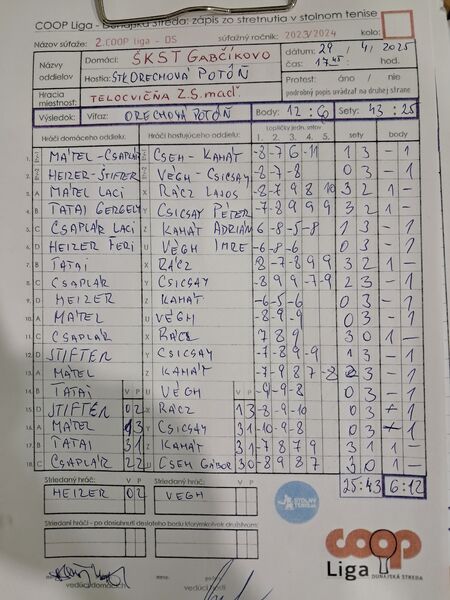 COOP Liga - Dunajská Streda: zápis zo stretnutia v stolnom tenise
Názov súťaže: 2. COOP liga - DS súťažný ročník: 2023/2024 kolo:
Názvy oddielov
Domáci: ŠKST GABČÍKOVO
Hostia: STK ORECHOVÁ POTÔŇ
dátum: 29 / 4 / 2025
čas: 17.45 hod.
Protest: áno / nie
podrobný popis uvádzať na druhej strane
Hracia miestnosť: TELOCVIČŇA Z.Š. maď.
Výsledok: Víťaz: ORECHOVÁ POTÔŇ Body: 12 : 6 Sety: 43 : 25
Hráči domáceho oddielu: Hráči hosťujúceho oddielu: Loptičky jedn. setov 1. 2. 3. 4. 5. sety body
1. MÁTEL - CSAPLÁR CSEH - KAMÁT -8 -7 6 -11 1 3 - 1
2. HEIZER - ŠTIFTER VÉGH - CSICSAY -8 -7 -8 0 3 - 1
3. MÁTEL LACI X RÁCZ LAJOS -8 -7 9 8 10 3 2 1 -
4. A TATAI GERGELY Y CSICSAY PÉTER -7 -8 9 9 9 3 2 1 -
5. C CSAPLÁR LACI Z KAMÁT ADRIÁN 6 -8 -5 -8 1 3 - 1
6. D HEIZER FERI U VÉGH IMRE -6 -8 -6 0 3 - 1
7. B TATAI X RÁCZ 8 -7 -8 9 9 3 2 1 -
8. C CSAPLÁR Y CSICSAY -8 8 9 -7 -9 2 3 - 1
9. D HEIZER Z KAMÁT -6 -5 -6 0 3 - 1
10. A MÁTEL U VÉGH -8 -9 -9 0 3 - 1
11. C CSAPLÁR X RÁCZ 7 8 9 3 0 1 -
12. D STIFTER Y CSICSAY -7 -8 9 -9 1 3 - 1
13. A MÁTEL Z KAMÁT -7 -9 8 7 -8 2 3 - 1
14. B TATAI V P U VÉGH V P -4 -9 -8 0 3 - 1
15. D STIFTER 0 2 X RÁCZ 1 3 -8 -9 -10 0 3 - 1
16. A MÁTEL 1 3 Y CSICSAY 3 1 -10 -9 -8 0 3 - 1
17. B TATAI 3 1 Z KAMÁT 3 1 -7 8 7 9 3 1 1 -
18. C CSAPLÁR 2 2 U CSEH GÁBOR 3 0 -8 9 8 7
25:43 6:12
Striedaný hráč: V P Striedaný hráč: V P
HEIZER 0 2 VEGH
STOLNÝ TENIS
Striedaní hráči - po dosiahnutí desiateho bodu ktorýmkoľvek družstvom:
coop
Liga DUNAJSKÁ STREDA
vedúci domácich vedúci hostí